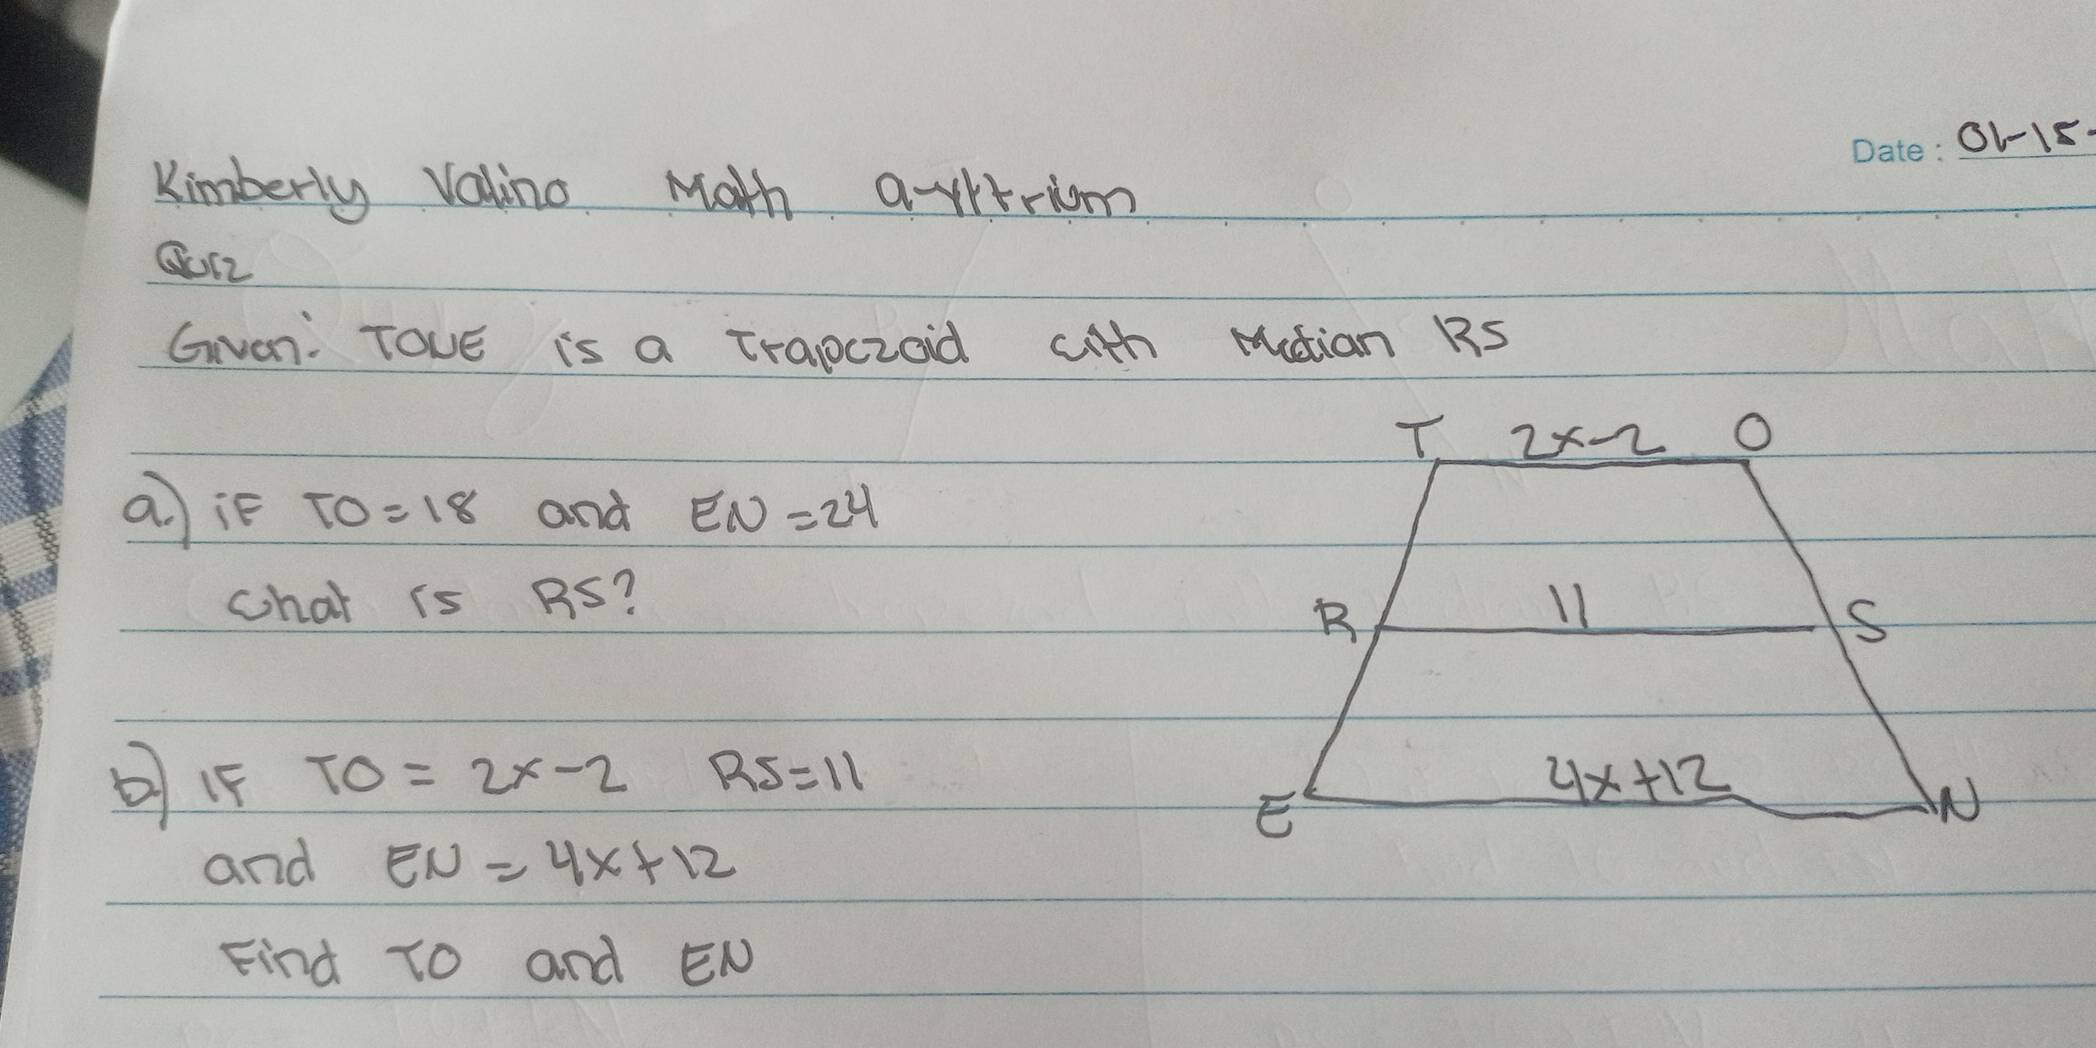 Date: 01-15-
Kimberly Valino Math 9-yttrium
Quiz
Given: TONE is a Trapezoid with Median RS
a.) iF TO=18 and EN=24
what is RS?
b) IF TO = 2x-2 RS=11
and EN = 4x+12
Find TO and EN
T 2x-2 O
R 11 S
E 4x+12 N